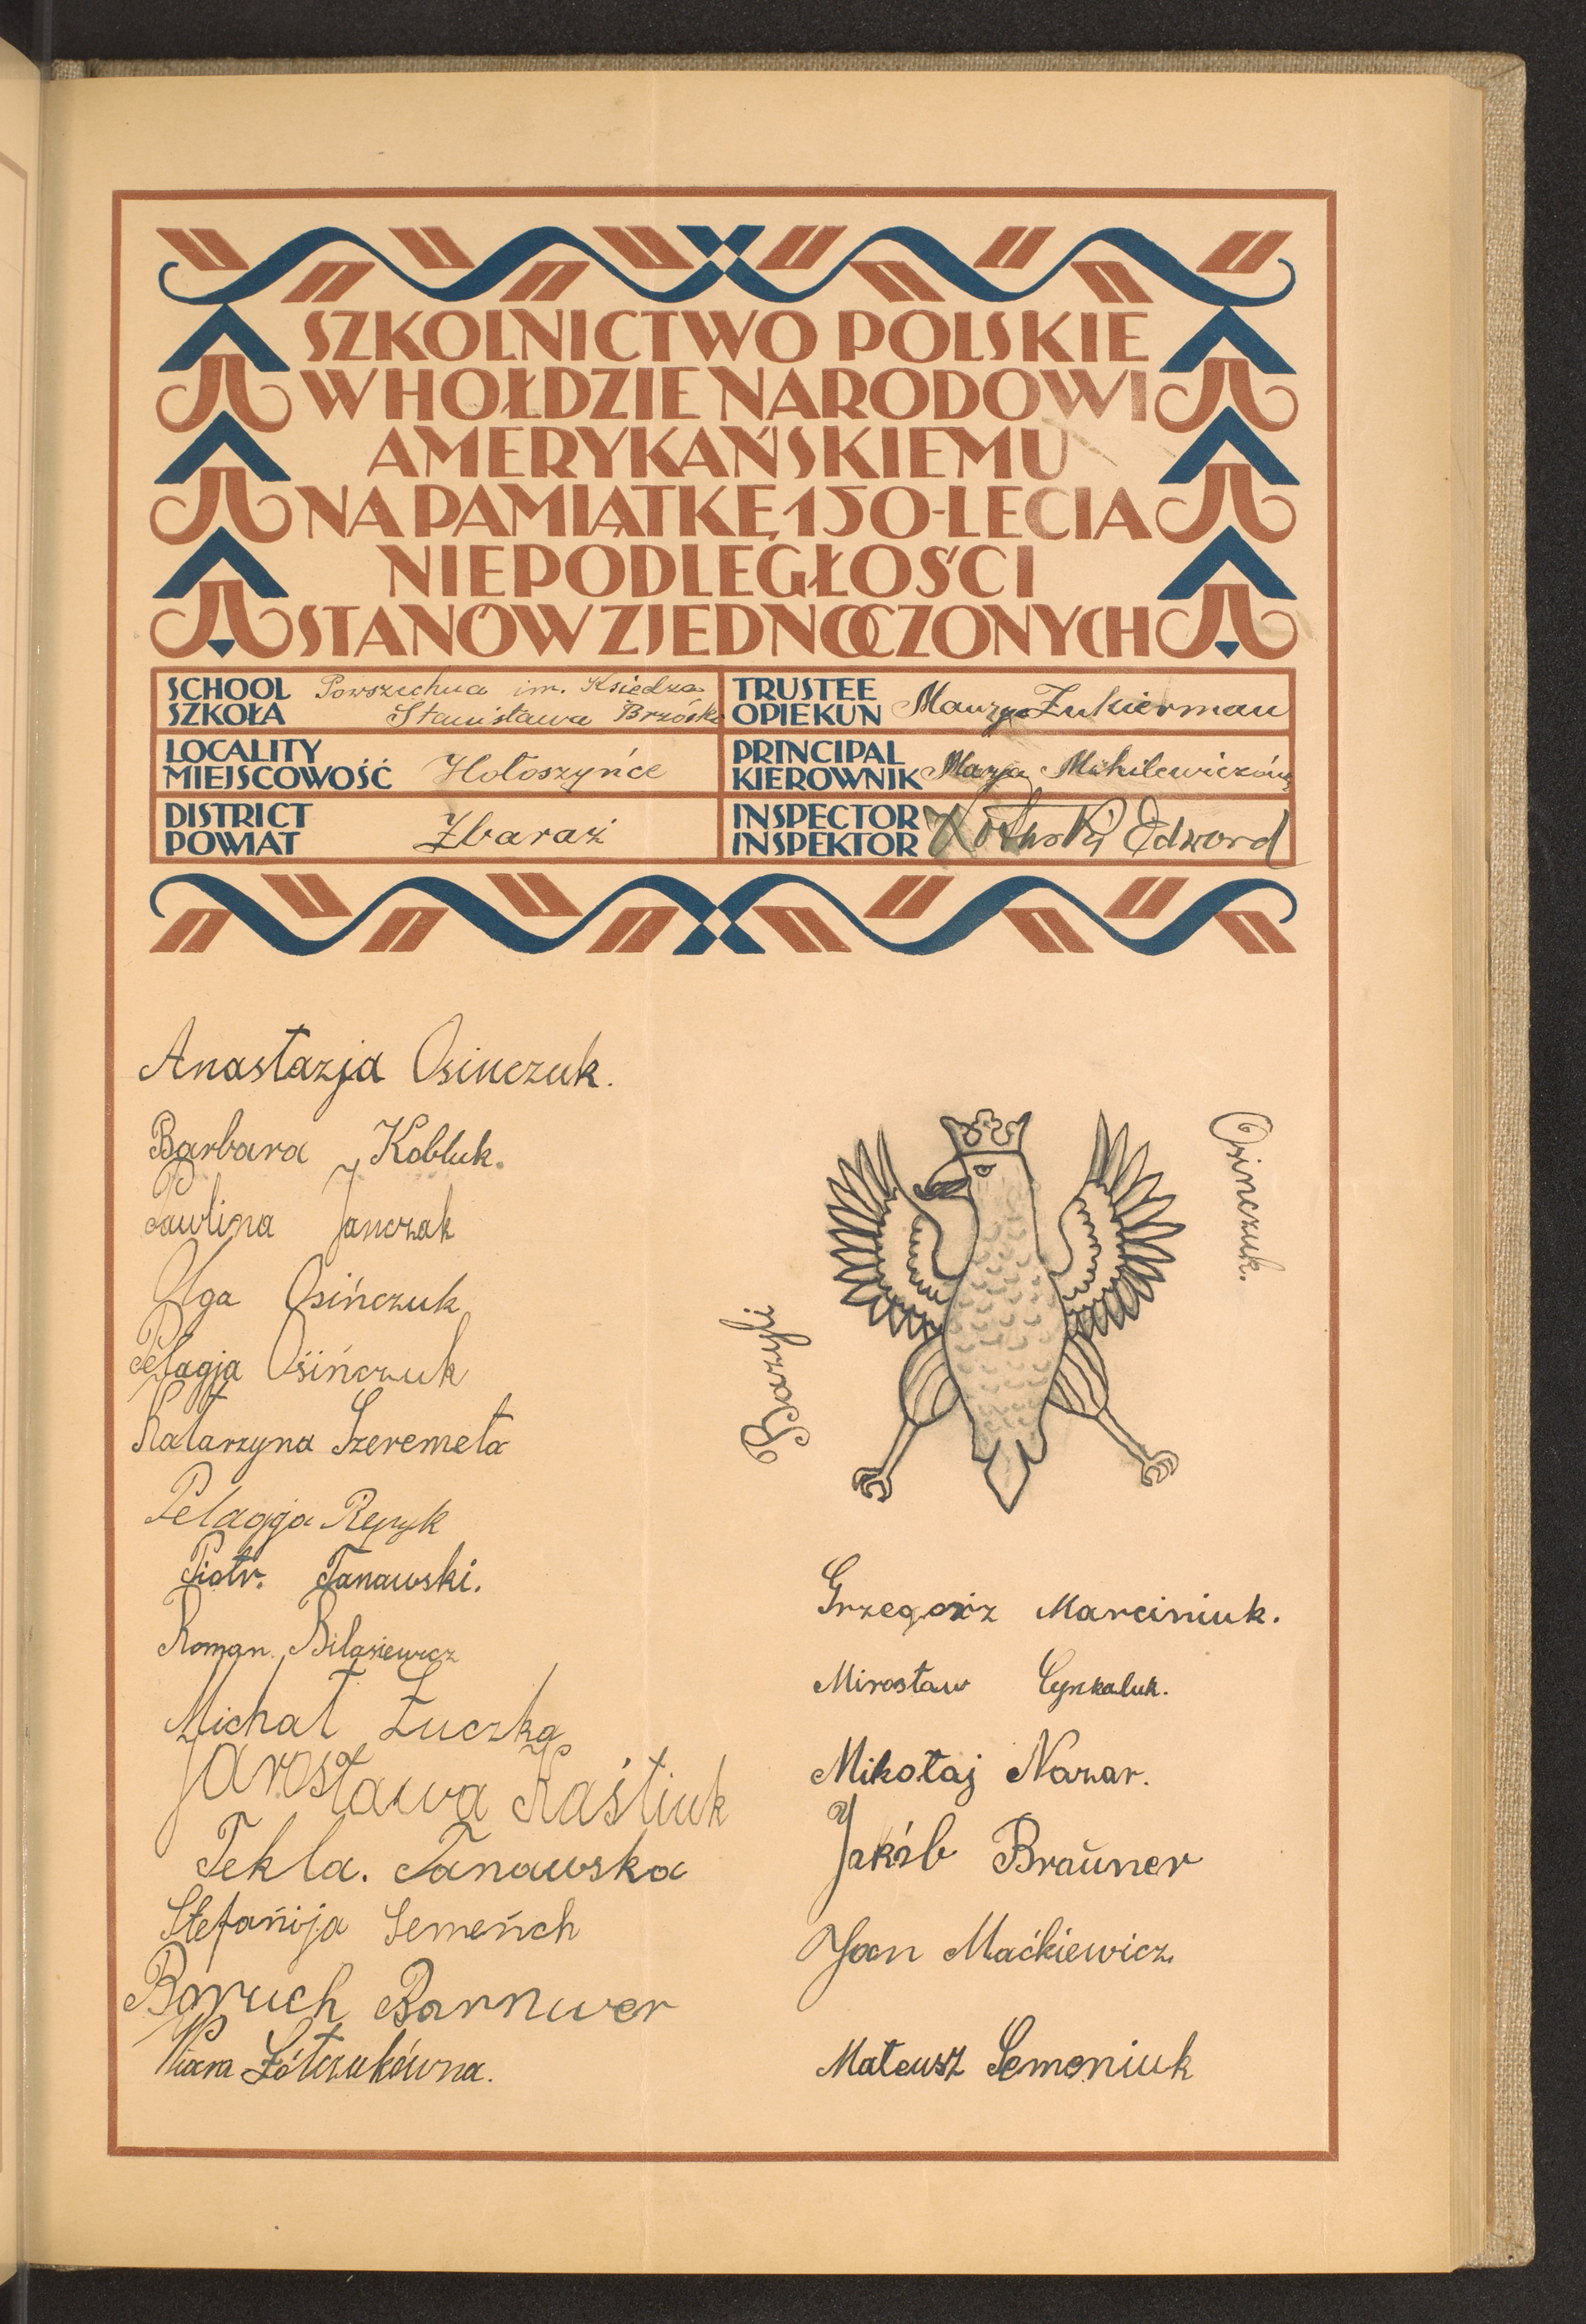 SZKOLNICTWO POLSKIE
W HOŁDZIE NARODOWI
AMERYKAŃSKIEMU
NA PAMIĄTKĘ 150-LECIA
NIEPODLEGŁOŚCI
STANÓW ZJEDNOCZONYCH
SCHOOL
SZKOŁA
Powszechna im. Księdza
Stanisława Brzóski
TRUSTEE
OPIEKUN
Maurycy Zukierman
LOCALITY
MIEJSCOWOŚĆ
Hołoszyńce
PRINCIPAL
KIEROWNIK
Marja
DISTRICT
POWIAT
Zbaraż
INSPECTOR
INSPEKTOR
Edward
Anastazja Osinczuk.
Barbara Kobluk.
Pawlina Janczak
Olga Osińczuk
Pelagja Osińczuk
Katarzyna Szeremeta
Pelagja
Piotr. Tanawski.
Roman.
Michał Łuczka
Jarosława Kaśtiuk
Tekla. Tanawska
Stefańija Semeńch
Baruch
Wiara Żółczukówna.
Bazyli
Osinczuk.
Grzegorz Marciniuk.
Mirosław Cynkaluk.
Mikołaj Nazar.
Jakób Braŭner
Jan Maćkiewicz
Mateusz Semoniuk